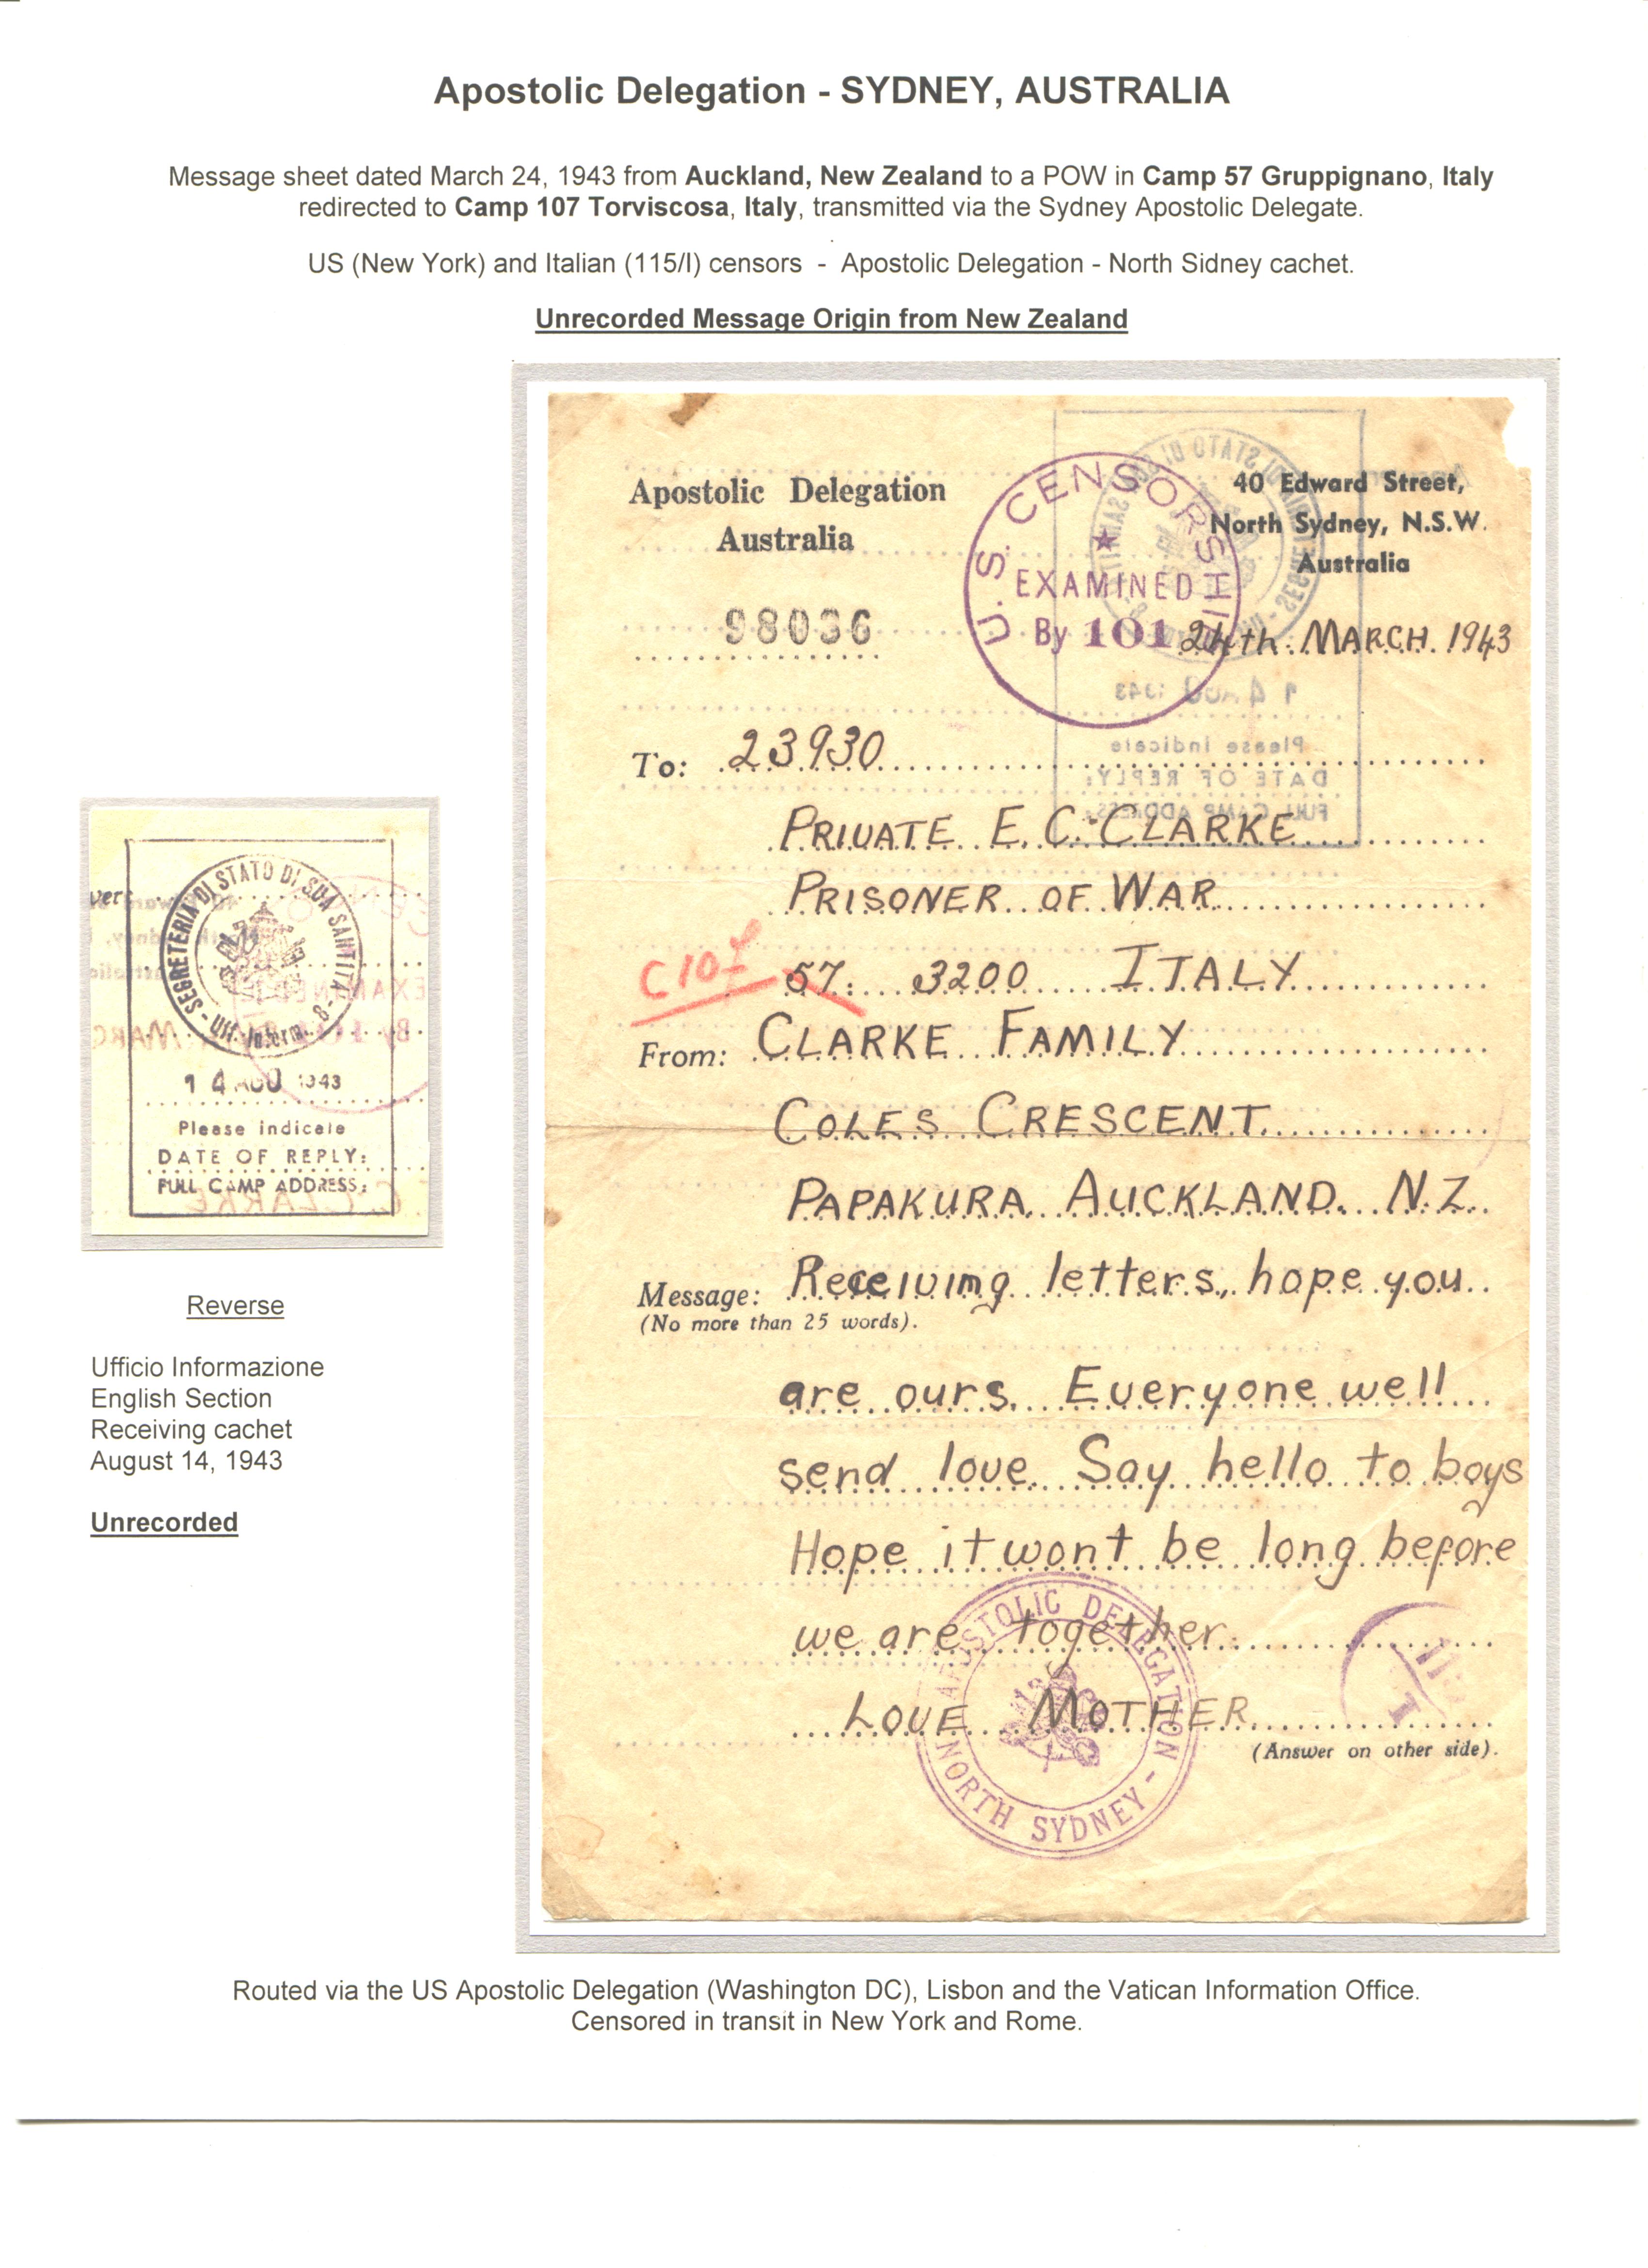 Apostolic Delegation - SYDNEY, AUSTRALIA
Message sheet dated March 24, 1943 from Auckland, New Zealand to a POW in Camp 57 Gruppignano, Italy
redirected to Camp 107 Torviscosa, Italy, transmitted via the Sydney Apostolic Delegate.
US (New York) and Italian (115/I) censors - Apostolic Delegation - North Sidney cachet.
Unrecorded Message Origin from New Zealand
Apostolic Delegation
Australia
40 Edward Street,
North Sydney, N.S.W.
Australia
U.S. CENSORSHIP
EXAMINED
By 101
98036
24th. MARCH. 1943
To: 23930
PRIVATE E. C. CLARKE
PRISONER OF WAR
C107 57. 3200 ITALY
From: CLARKE FAMILY
COLES CRESCENT
PAPAKURA AUCKLAND. N.Z.
Message: Receiving letters, hope you
(No more than 25 words).
are ours. Everyone well
send love. Say hello to boys
Hope it wont be long before
we are together.
LOVE MOTHER
(Answer on other side).
APOSTOLIC DELEGATION
- NORTH SYDNEY -
SEGRETERIA DI STATO DI SUA SANTITA
- Uff. Inform. 8 -
14 AGO 1943
Please indicate
DATE OF REPLY:
FULL CAMP ADDRESS:
Reverse
Ufficio Informazione
English Section
Receiving cachet
August 14, 1943
Unrecorded
Routed via the US Apostolic Delegation (Washington DC), Lisbon and the Vatican Information Office.
Censored in transit in New York and Rome.